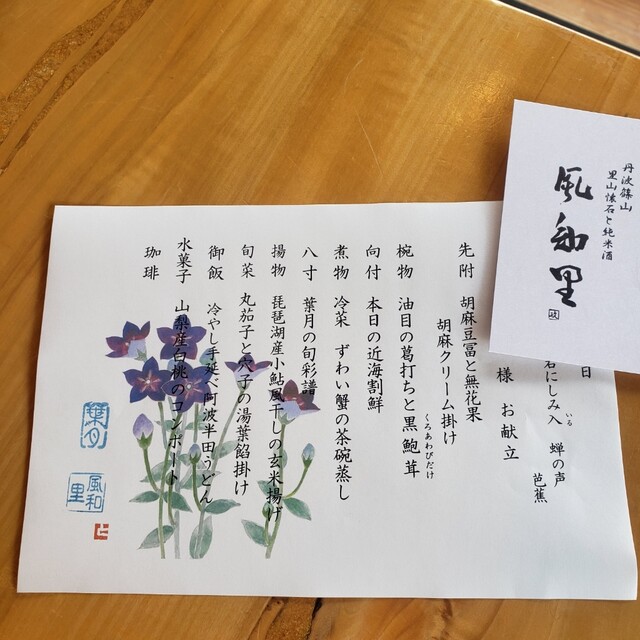 丹波篠山
里山懐石と純米酒
風和里
日
石にしみ入 蝉の声
いる
芭蕉
様 お献立
先附 胡麻豆冨と無花果
胡麻クリーム掛け
椀物 油目の葛打ちと黒鮑茸
くろあわびだけ
向付 本日の近海割鮮
煮物 冷菜 ずわい蟹の茶碗蒸し
八寸 葉月の旬彩譜
揚物 琵琶湖産小鮎風干しの玄米揚げ
旬菜 丸茄子と穴子の湯葉餡掛け
御飯 冷やし手延べ阿波半田うどん
水菓子 山梨産白桃のコンポート
珈琲
葉月
風和里